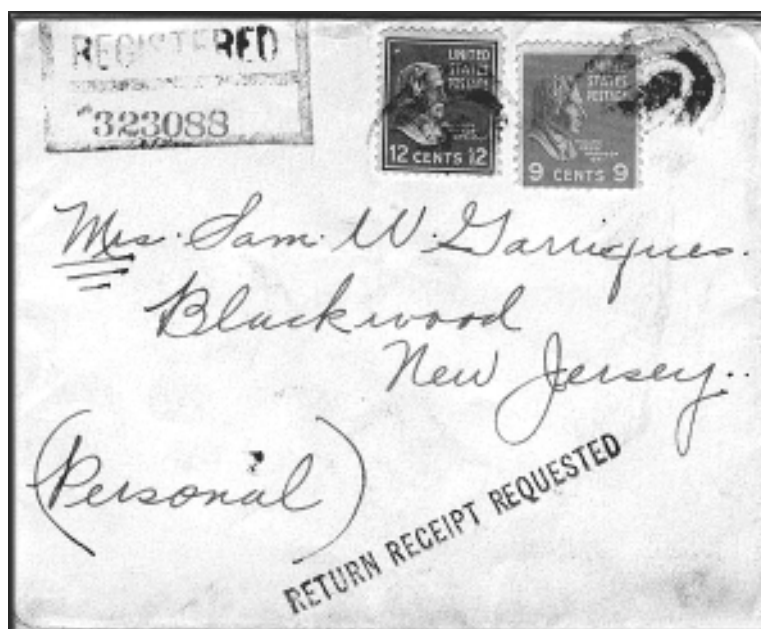 REGISTERED
323088
UNITED
STATES
POSTAGE
12 CENTS 12
UNITED
STATES
POSTAGE
9 CENTS 9
Mrs. Sam. W. Garrigues.
Blackwood
New Jersey.
(Personal)
RETURN RECEIPT REQUESTED